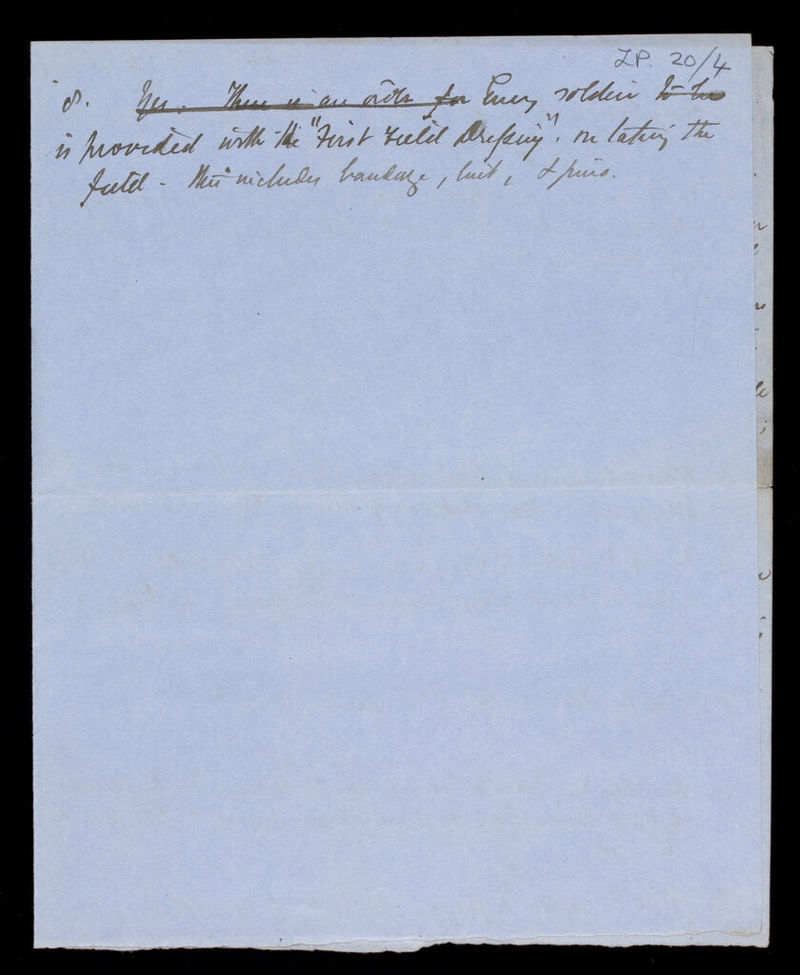 LP. 20/4
8. Yes. There is an order for Every soldier to be
is provided with the "First Field Dressing". on taking the
field - This includes bandage, lint, & pins.